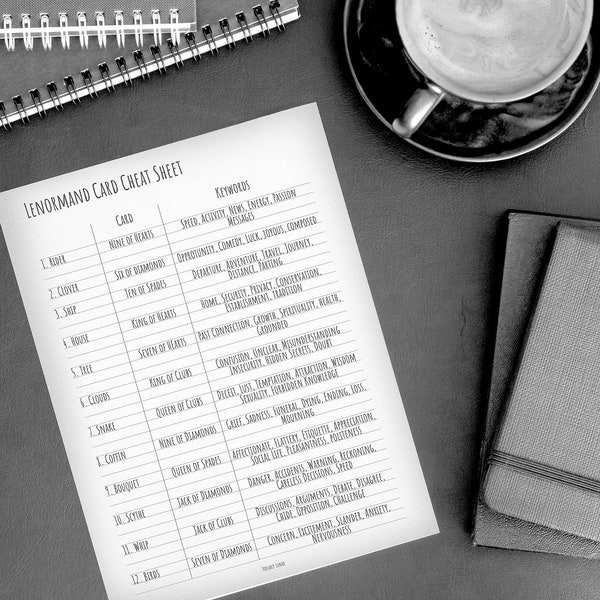 Lenormand Card Cheat Sheet
Card Keywords
1. Rider Nine of Hearts Speed, Activity, News, Energy, Passion
Messages
2. Clover Six of Diamonds Opportunity, Comedy, Luck, Joyous, composed
3. Ship Ten of Spades Departure, Adventure, Travel, Journey,
Distance, Parting
4. House King of Hearts Home, Security, Privacy, Conservation,
Establishment, tradition
5. Tree Seven of Hearts Past Connection, Growth, Spirituality, Health,
Grounded
6. Clouds King of Clubs Confusion, Unclear, Misunderstanding
Insecurity, Hidden Secrets, Doubt
7. Snake Queen of Clubs Deceit, Lust, Temptation, Attraction, Wisdom,
Sexuality, Forbidden Knowledge
8. Coffin Nine of Diamonds Grief, Sadness, Funeral, Dying, Ending, Loss,
Mourning
9. Bouquet Queen of Spades Affectionate, Flattery, Etiquette, Appreciation,
Social Life, Pleasantness, politeness
10. Scythe Jack of Diamonds Danger, Accidents, Warning, Reckoning,
Careless Decisions, Speed
11. Whip Jack of Clubs Discussions, Arguments, Debate, Disagree,
Chide, Opposition, Challenge
12. Birds Seven of Diamonds Concern, Excitement, Slander, Anxiety,
Nervousness